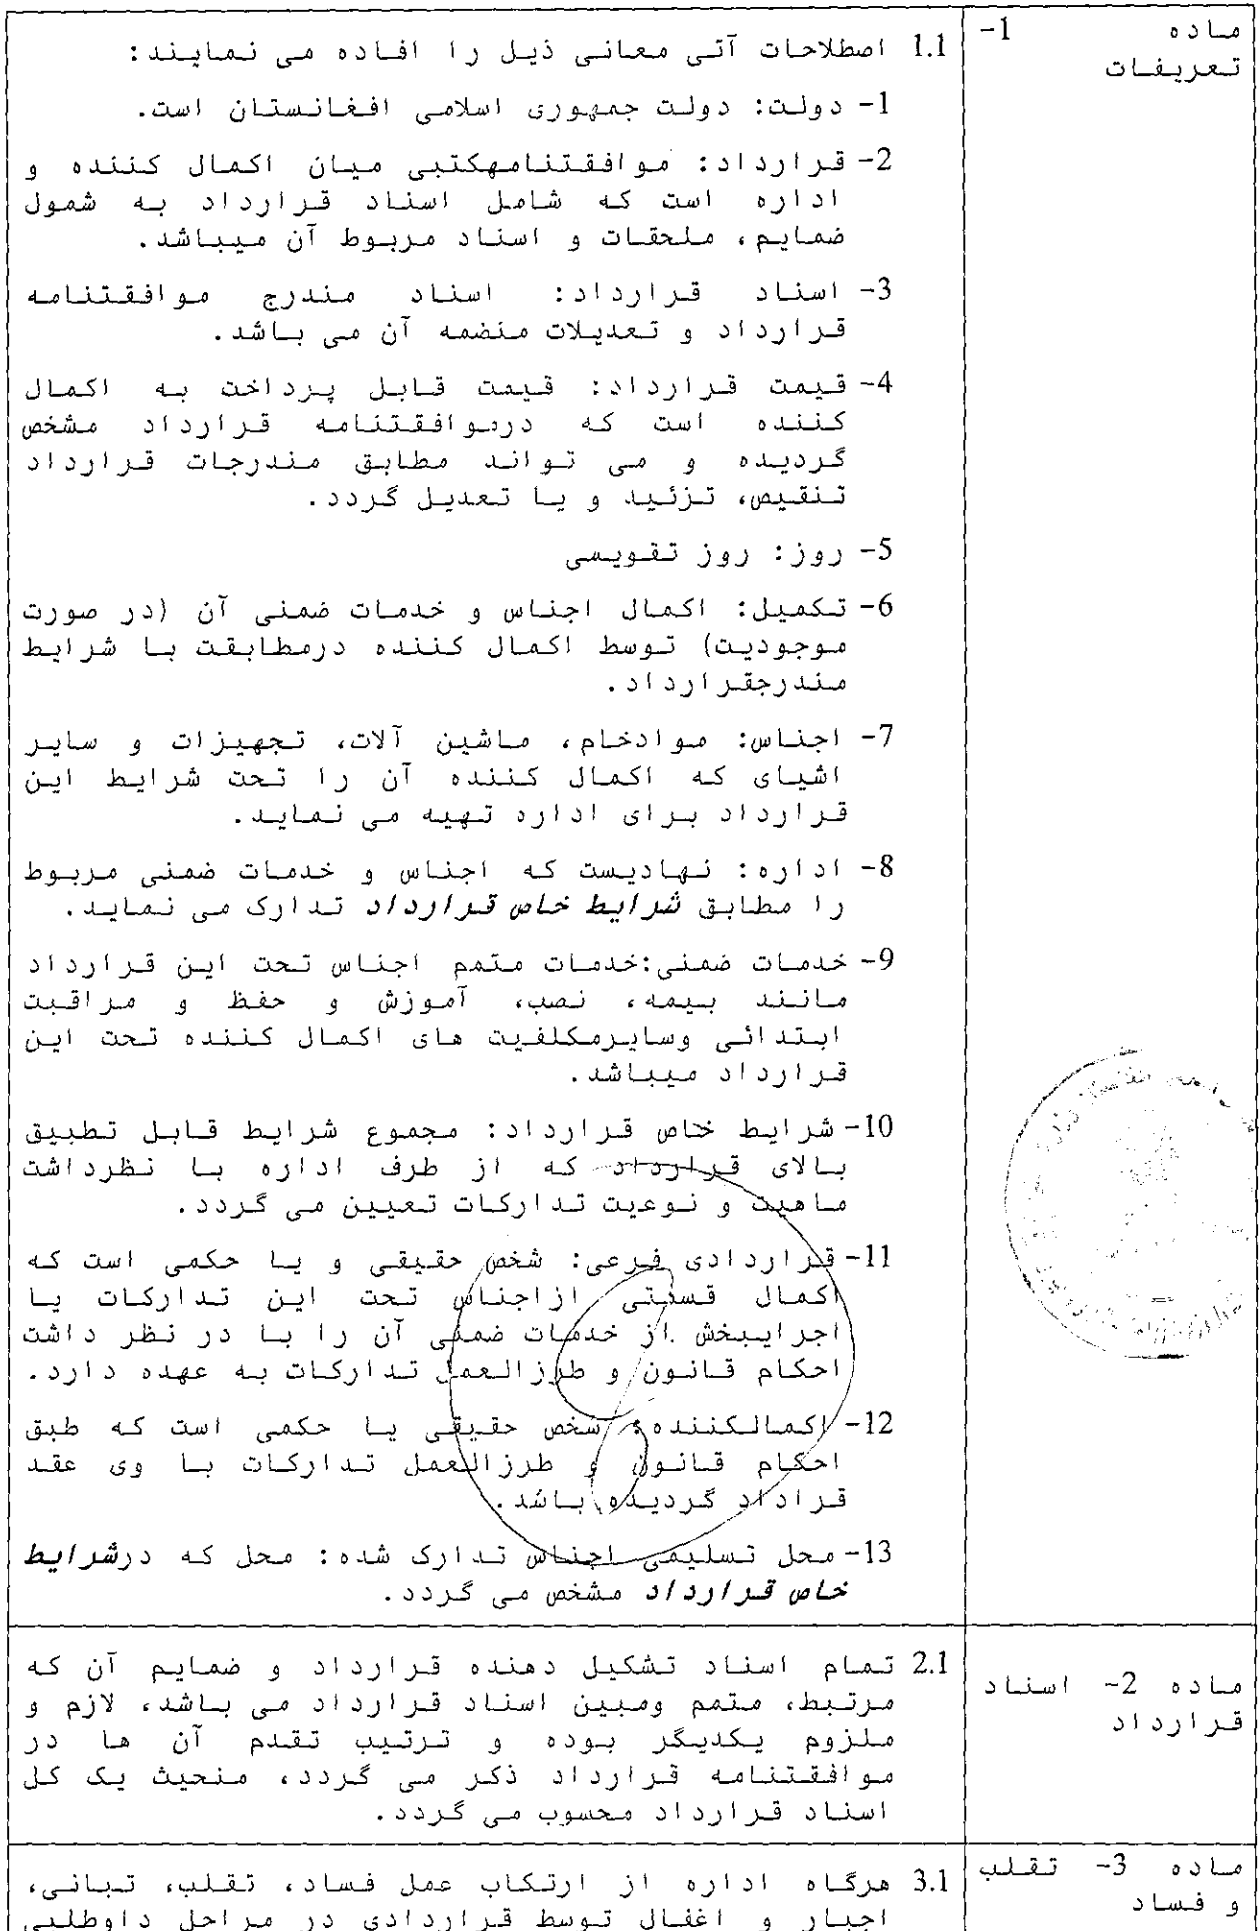 ماده 1-
تعریفات
1.1 اصطلاحات آتی معانی ذیل را افاده می نمایند:
1- دولت: دولت جمهوری اسلامی افغانستان است.
2- قرارداد: موافقتنامهکتبی میان اکمال کننده و
اداره است که شامل اسناد قرارداد به شمول
ضمایم، ملحقات و اسناد مربوط آن میباشد.
3- اسناد قرارداد: اسناد مندرج موافقتنامه
قرارداد و تعدیلات منضمه آن می باشد.
4- قیمت قرارداد: قیمت قابل پرداخت به اکمال
کننده است که درموافقتنامه قرارداد مشخص
گردیده و می تواند مطابق مندرجات قرارداد
تنقیص، تزئید و یا تعدیل گردد.
5- روز: روز تقویمی
6- تکمیل: اکمال اجناس و خدمات ضمنی آن (در صورت
موجودیت) توسط اکمال کننده درمطابقت با شرایط
مندرجقرارداد.
7- اجناس: موادخام، ماشین آلات، تجهیزات و سایر
اشیای که اکمال کننده آن را تحت شرایط این
قرارداد برای اداره تهیه می نماید.
8- اداره: نهادیست که اجناس و خدمات ضمنی مربوط
را مطابق شرایط خاص قرارداد تدارک می نماید.
9- خدمات ضمنی:خدمات متمم اجناس تحت این قرارداد
مانند بیمه، نصب، آموزش و حفظ و مراقبت
ابتدائی وسایرمکلفیت های اکمال کننده تحت این
قرارداد میباشد.
10- شرایط خاص قرارداد: مجموع شرایط قابل تطبیق
بالای قرارداد که از طرف اداره با نظرداشت
ماهیت و نوعیت تدارکات تعیین می گردد.
11- قراردادی فرعی: شخص حقیقی و یا حکمی است که
اکمال قسمتی ازاجناس تحت این تدارکات یا
اجرایبخش از خدمات ضمنی آن را با در نظر داشت
احکام قانون و طرزالعمل تدارکات به عهده دارد.
12- اکمالکننده: شخص حقیقی یا حکمی است که طبق
احکام قانون و طرزالعمل تدارکات با وی عقد
قراداد گردیده باشد.
13- محل تسلیمی اجناس تدارک شده: محل که درشرایط
خاص قرارداد مشخص می گردد.
ماده 2- اسناد
قرارداد
2.1 تمام اسناد تشکیل دهنده قرارداد و ضمایم آن که
مرتبط، متمم ومبین اسناد قرارداد می باشد، لازم و
ملزوم یکدیگر بوده و ترتیب تقدم آن ها در
موافقتنامه قرارداد ذکر می گردد، منحیث یک کل
اسناد قرارداد محسوب می گردد.
ماده 3- تقلب
و فساد
3.1 هرگاه اداره از ارتکاب عمل فساد، تقلب، تبانی،
اجبار و اغفال توسط قراردادی در مراحل داوطلبی